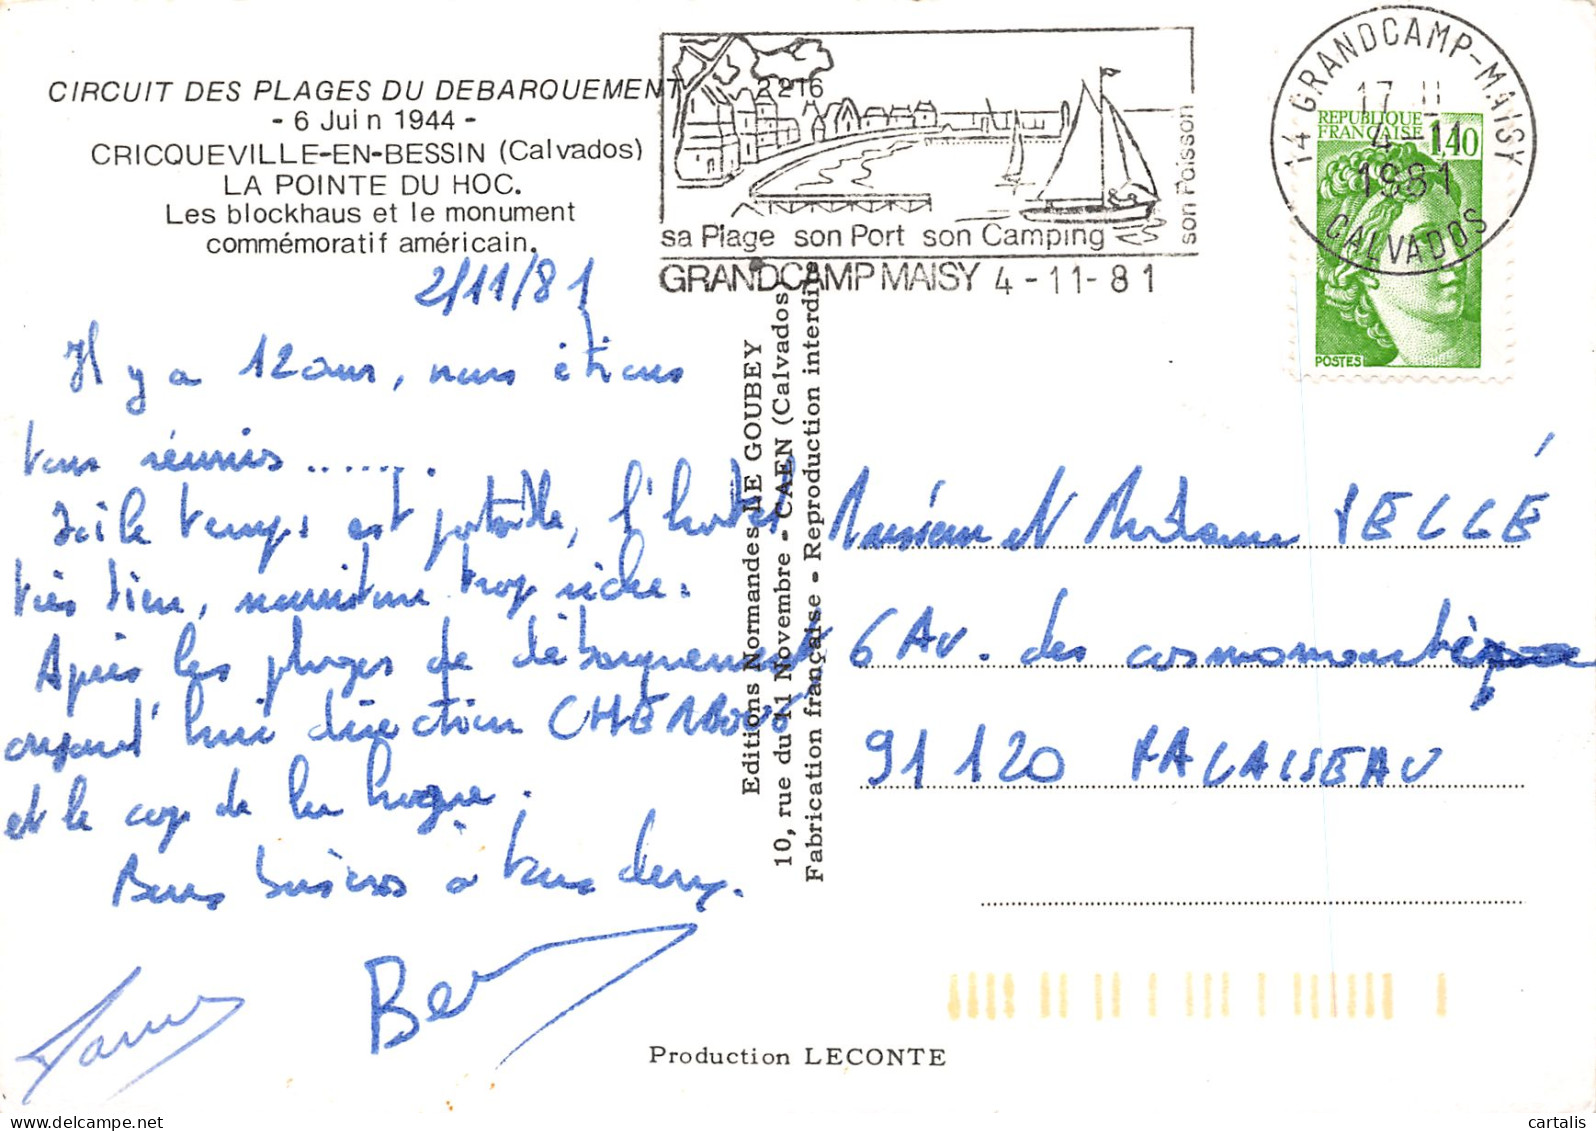 CIRCUIT DES PLAGES DU DEBARQUEMENT 2216
- 6 Juin 1944 -
CRICQUEVILLE-EN-BESSIN (Calvados)
LA POINTE DU HOC.
Les blockhaus et le monument
commémoratif américain.
2/11/81
Il y a 12 ans, nous étions
tous réunis .......
Ici le temps est potable, l'hotel
très bien, nourriture trop riche.
Après les plages de débarquement
aujourd'hui direction CHERBOURG
et le cap de la hogue.
Bons baisers à tous deux.
Ber
sa Plage son Port son Camping
son Poisson
GRANDCAMP MAISY 4-11-81
14 GRANDCAMP-MAISY
17 H
4-11
1981
CALVADOS
REPUBLIQUE
FRANÇAISE 1,40
POSTES
Editions Normandes LE GOUBEY
10, rue du 11 Novembre - CAEN (Calvados)
Fabrication française - Reproduction interdite
Monsieur et Madame PELLÉ
6 Av. des cosmonautes
91120 PALAISEAU
Production LECONTE
cartalis